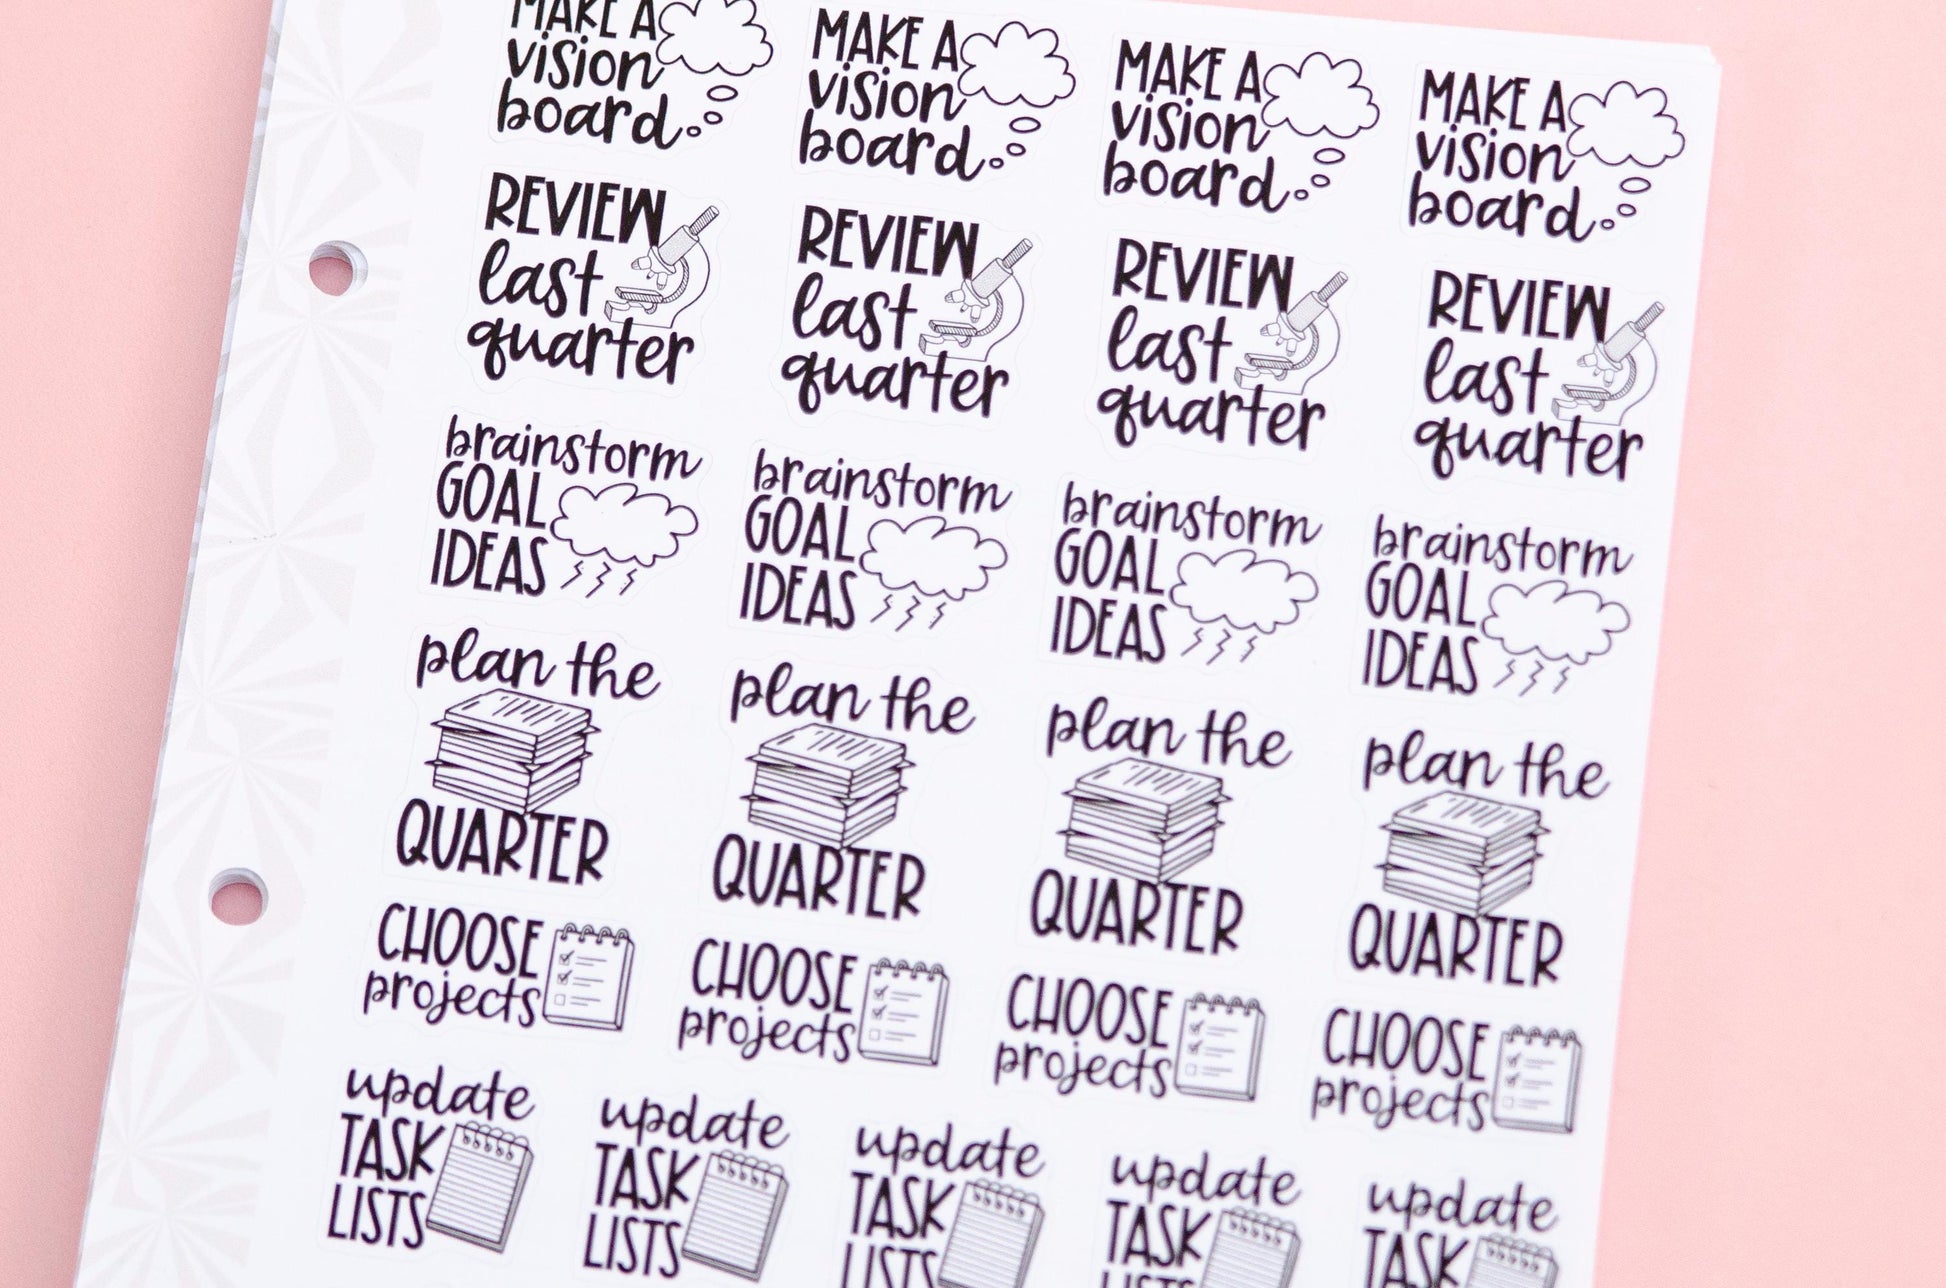 MAKE A MAKE A MAKE A MAKE A
vision vision vision vision
board board board board
REVIEW REVIEW REVIEW REVIEW
last last last last
quarter quarter quarter quarter
brainstorm brainstorm brainstorm brainstorm
GOAL GOAL GOAL GOAL
IDEAS IDEAS IDEAS IDEAS
plan the plan the plan the plan the
QUARTER QUARTER QUARTER QUARTER
CHOOSE CHOOSE CHOOSE CHOOSE
projects projects projects projects
update update update update update
TASK TASK TASK TASK TASK
LISTS LISTS LISTS LISTS